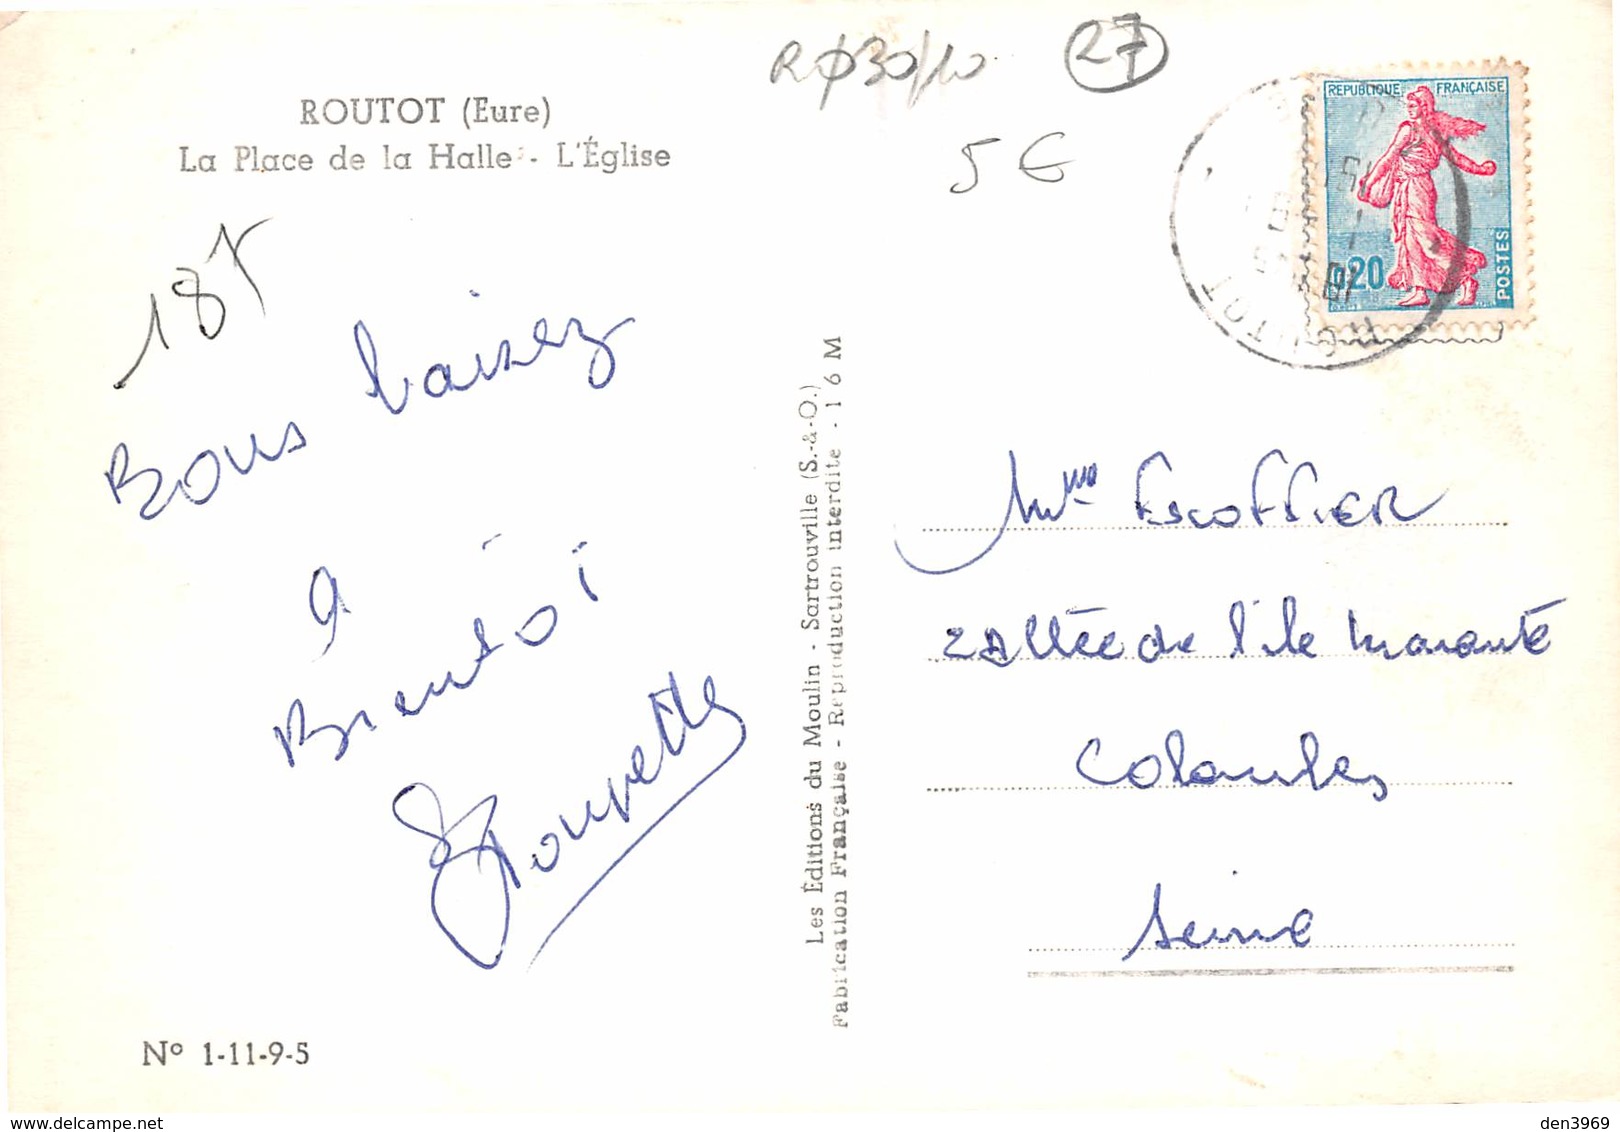 ROUTOT (Eure)
La Place de la Halle - L'Église
187
Bons baisez
a
Bientôt
Poupette
N° 1-11-9-5
Les Éditions du Moulin - Sartrouville (S.-&-O.)
Fabrication Française - Reproduction interdite - 16 M
27
5 €
REPUBLIQUE FRANÇAISE
0,20
POSTES
ROUTOT
Mme Escoffier
2 Allée de l'ile Marante
Colombes
Seine
den3969